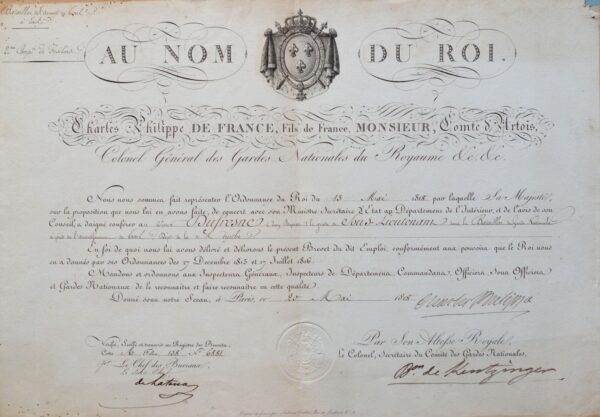 à
2.me
AU NOM DU ROI.
Charles Philippe DE FRANCE, Fils de France, MONSIEUR, Comte d'Artois,
Colonel Général des Gardes Nationales du Royaume &c. &c.
Nous nous sommes fait représenter l'Ordonnance du Roi du 13 Mai 1818 par laquelle Sa Majesté,
sur la proposition que nous lui en avons faite, de concert avec son Ministre Secrétaire d'Etat au Département de l'Intérieur, et de l'avis de son
Conseil, a daigné conférer au Sieur Dufresne le grade de Sous Lieutenant dans le Bataillon
En foi de quoi nous lui avons délivré et délivrons le présent Brevet du dit Emploi, conformément aux pouvoirs que le Roi nous
en a donnés par ses Ordonnances des 27 Décembre 1815 et 17 Juillet 1816.
Mandons et ordonnons aux Inspecteurs Généraux, Inspecteurs de Département, Commandans, Officiers, Sous Officiers
et Gardes Nationaux de le reconnaître et faire reconnaître en cette qualité.
Donné sous notre Sceau, à Paris, ce 20 Mai 1818 Charles Philippe
Vérifié, Scellé et transcrit au Registre des Brevets,
Coté M. Folio 138 N.o 6881
Le Chef des Bureaux
Par Son Altesse Royale,
Le Colonel, Secrétaire du Comité des Gardes Nationales,
B.on de Kentzinger